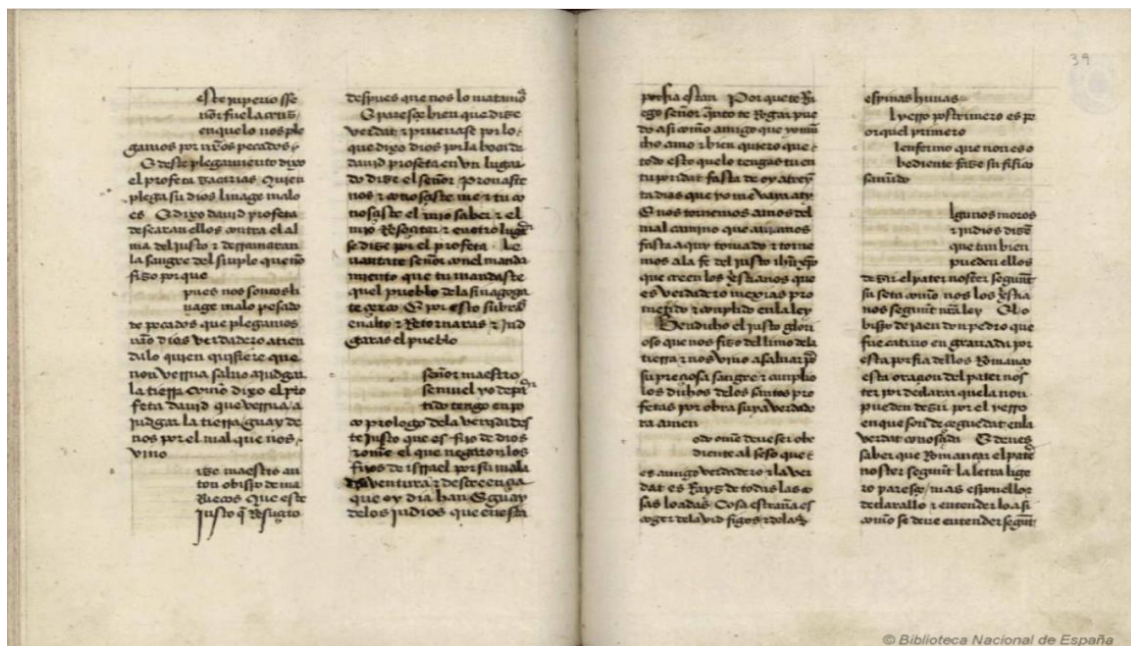 este imperio sse
ñor fue la crus
en que lo nos ple
gamos por nr̃os pecados
E deste plegamiento dixo
el profeta zacarias Quien
plega su dios linage malo
es E dixo dauid profeta
descaran ellos contra el al
ma del justo & derramaran
la sangre del sinple que no
fizo por que
pues nos somos li
nage malo pesado
de pecados que plegamos
nr̃o dios verdadero aten
dalo quien quisiere que
non verna saluo a judgar
la tierra como dixo el pro
feta dauid que verna a
judgar la tierra guay de
nos por el mal que nos
vino
ize maestro an
ton obispo de ma
rruecos Que este
justo q̃ Resusçito
despues que nos lo matamos
E paresçe bien que dize
verdat & prueuase por lo
que dixo dios por la boca de
dauid profeta en vn lugar
do dize el señor Prouaste
nos & conosçiste me & tu co
nosçiste el mio saber & el
mio Resusçitar & en otro lugar
se dize por el profeta Le
uantate señor con el manda
miento que tu mandaste
quel pueblo dela sinagoga
te çerco E por esto subras
en alto & Retornaras & jud
garas el pueblo
señor maestro
semuel yo depar
tido tengo en po
co prologo dela venida des
te justo que es fijo de dios
& ome el que negaron los
fijos de israel por su mala
ventura & descreençia
que oy dia han E guay
delos judios que en esta
porfia estan Por que te Ru
ego señor q̃nto te Rogar pue
do asi como amigo que yo mu
cho amo & bien quiero que
todo esto que lo tengas tu en
tu poridat fasta de oy a treyn
ta dias que yo me vaya a ty
E nos tornemos amos del
mal camino que auiamos
fasta aquy tomado & torne
mos a la fe del justo ihũ xp̃o
que creen los xp̃stianos que
es verdadero mexias pro
metido & conplido en la ley
Bendicho el justo glori
oso que nos fizo del limo dela
tierra & nos vino a saluar por
su preçiosa sangre & cunplio
los dichos delos santos pro
fetas por obra suya verdade
ra amen
odo ome deue ser obe
diente al seso que
es amigo verdadero & la ver
dat es Rayz de todas las co
sas loadas Cosa estraña es
coger dela vid figos & delas
39
espinas huuas
l yerro postrimero es pe
or quel primero
l enfermo que non es o
bediente faze su fisico
sañudo
lgunos moros
& judios dizen
que tan bien
pueden ellos
dezir el pater noster segunt
su seta como nos los xp̃stia
nos segunt nr̃a ley E lo
bispo de jaen don pedro que
fue catiuo en granada por
esta porfia dellos Romanço
esta oraçion del pater nos
ter por declarar que la non
pueden dezir por el yerro
en que son de çeguedat en la
verdat conosçida E deues
saber que Romançar el pater
noster segunt la letra lige
ro paresçe mas espunellor
declarallo & entender lo asi
como se deue entender segunt
© Biblioteca Nacional de España